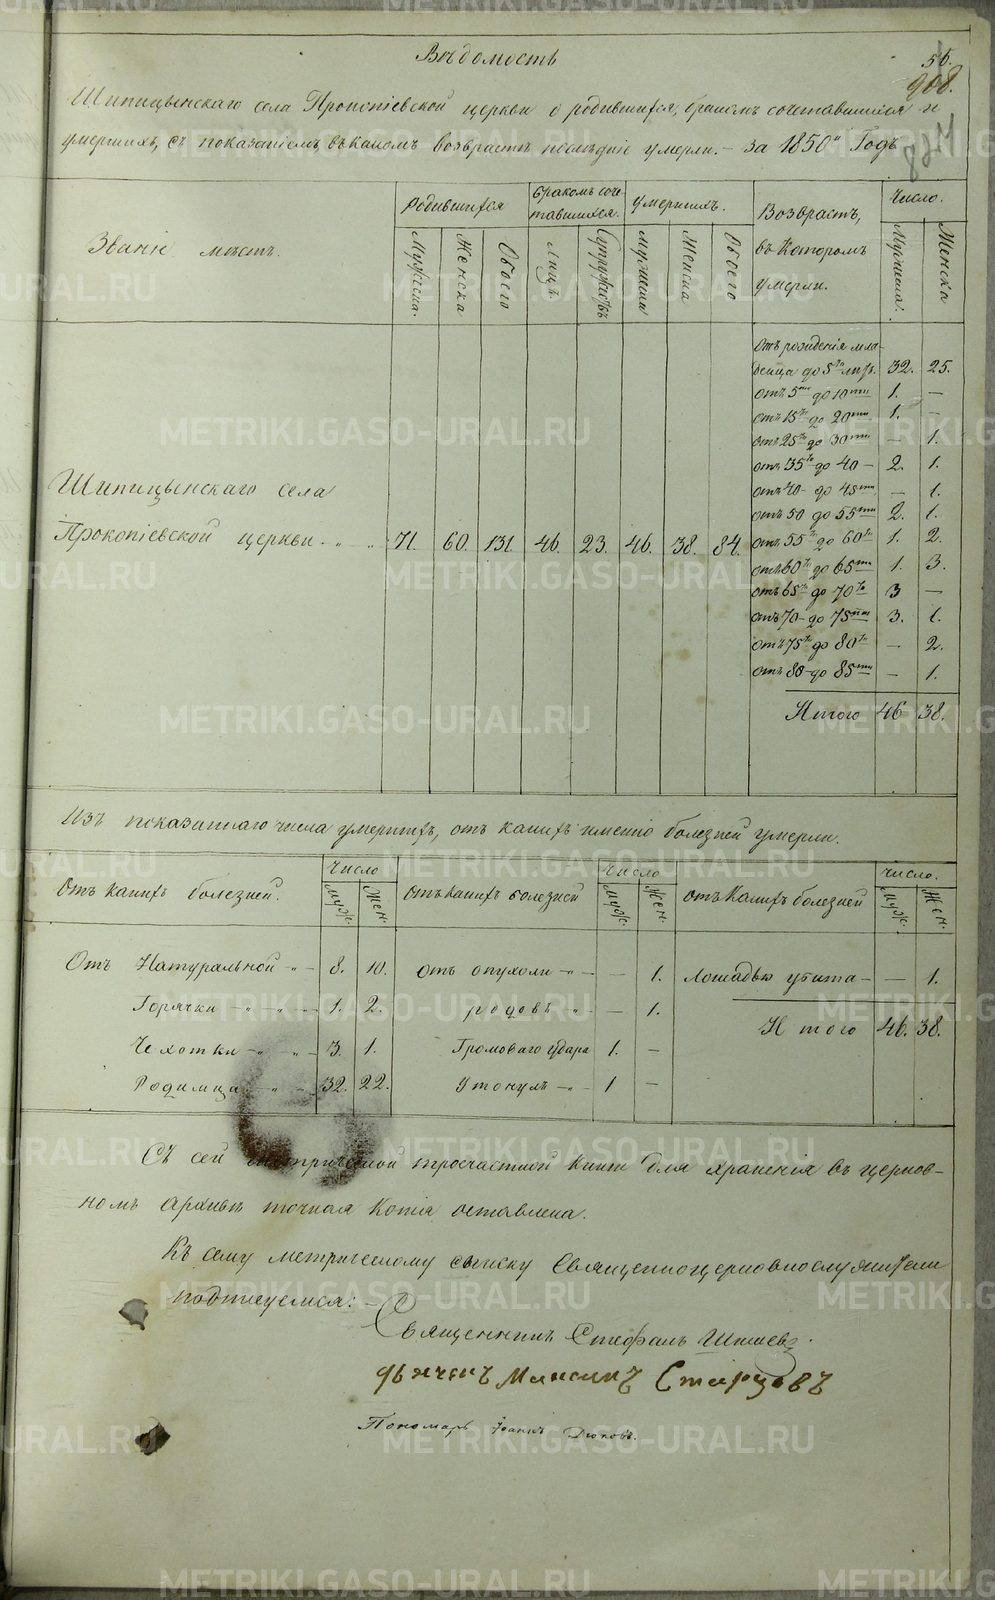 Вѣдомость
56.
908.
Шипицынскаго села Прокопіевской церкви о родившихся, бракомъ сочетавшихся и
умершихъ, съ показаніемъ въ какомъ возврастѣ послѣдніе умерли. – За 1850й Годъ
Званіе мѣстъ.
Родившихся
Бракомъ соче-
тавшихся.
умершихъ.
Возврастъ,
въ которомъ
умерли.
Число.
Мужеска.
Женска
Обоего
лицъ
Супружествъ
мужеска
Женска
Обоего
Мужеска.
Женска
Шипицынскаго села
Прокопіевской церкви. 71. 60. 131. 46. 23. 46. 38. 84.
Отъ рожденія мла-
денца до 5ти лѣтъ. 32. 25.
отъ 5ти до 10ти 1. –
отъ 15ти до 20ти 1. –
отъ 25ти до 30ти – 1.
отъ 35ти до 40 – 2. 1.
отъ 40 – до 45ти – 1.
отъ 50 до 55ти 2. 1.
отъ 55ти до 60ти 1. 2.
отъ 60ти до 65ти 1. 3.
отъ 65ти до 70ти 3 –
отъ 70 – до 75ти 3. 1.
отъ 75ти до 80ти – 2.
отъ 80 – до 85ти – 1.
Итого 46 38.
Изъ показаннаго числа умершихъ, отъ какихъ именно болезней умерли.
Отъ какихъ болезней. Число Муж. Жен. Отъ какихъ болезней Число Муж. Жен. отъ Какихъ болезней число. Муж. Жен.
Отъ Натуральной – 8. 10. отъ опухоли – – 1. Лошадью убита – – 1.
Горячки 1. 2. родовъ – 1. Итого 46. 38.
Чехотки 3. 1. Громоваго удара 1. –
Родимца 32. 22. Утонулъ 1 –
Съ сей метрической троечастной книги для храненія въ церков-
номъ архивѣ точная Копія оставлена.
Къ сему метрическому списку Священноцерковнослужители
подписуемся: –
Священникъ Стефанъ
дьячекъ Старцовъ
Пономарь Іоаннъ
METRIKI.GASO-URAL.RU